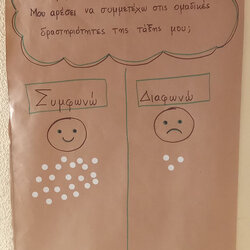 Μου αρέσει να συμμετέχω στις ομαδικές
δραστηριότητες της τάξης μου;
Συμφωνώ
Διαφωνώ